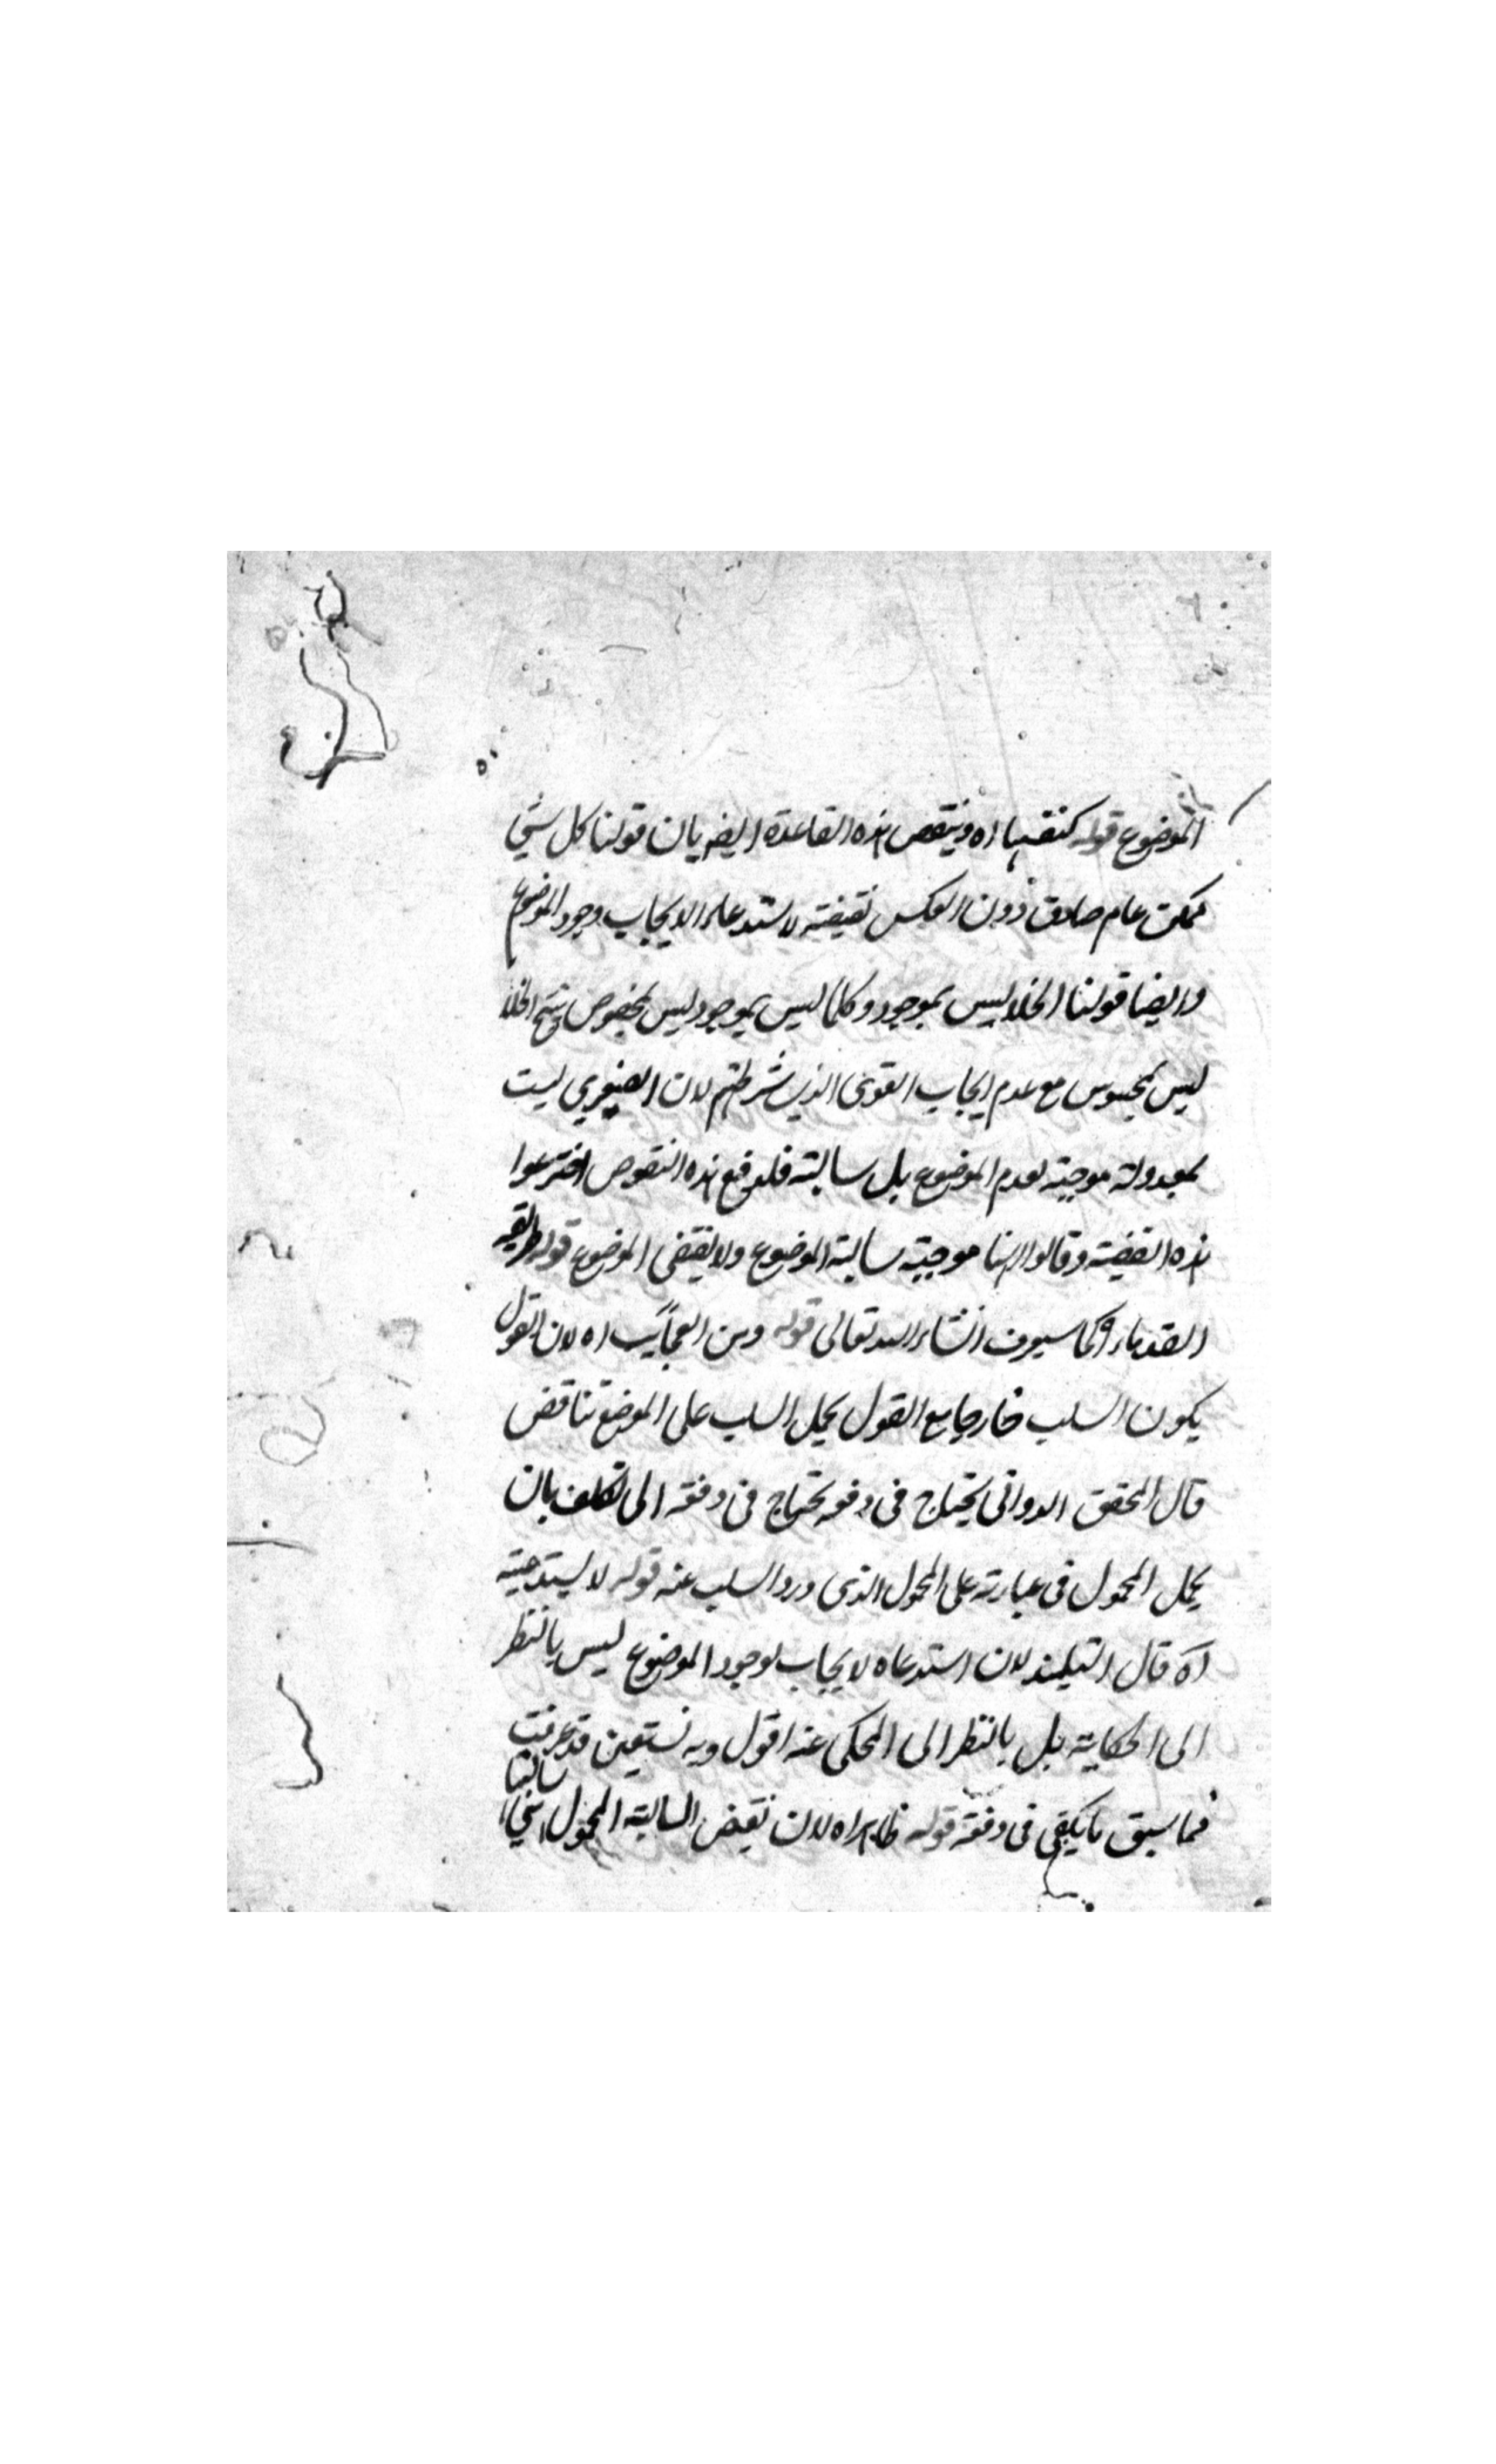 الموضوع قوله كنفيها اه وينتقض هذه القاعدة ايضه بان قولنا كل شي
ممكن عام صادق دون العكس نقيضه لاستدعاء الايجاب وجود الموضوع
وايضا قولنا الخلا ليس بموجود وكلما ليس بموجود ليس بمحسوس ينتج الخلا
ليس بمحسوس مع عدم ايجاب الصغرى الذي شرطتم لان الصغرى ليست
بمعدولة موجبة لعدم الموضوع بل سالبة فلدفع هذه النقوض اخترعوا
هذه القضية وقالوا انها موجبة سالبة الموضوع ولا يقتضى الموضوع قوله طريقه
القدماء كما سيعرف انشاء الله تعالى قوله ومن العجائب اه لان القول
يكون السلب خارجا مع القول بحمل السلب على الموضوع تناقض
قال المحقق الدوانى يحتاج فى دفعه يحتاج فى دفعه الى تكلف بان
يحمل المحمول فى عبارته على المحمول الذى ورد السلب عنه قوله لا يستدعيه
اه قال التلميذ لان استدعاه لايجاب لوجود الموضوع ليس بالنظر
الى الحكاية بل بالنظر الى المحكى عنه اقول وبه نستعين قد عرفت
فما سبق ما يكفى فى دفعه قوله ظاهر اه لان نقيض السالبة المحمول